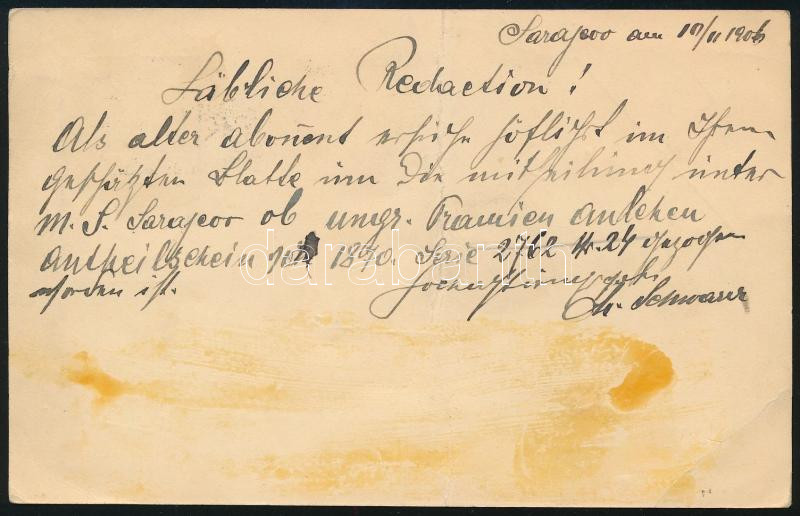 Sarajevo am 10/II 1906
Löbliche Redaction!
Als alter abonent ersuche höflichst im Ihrem
geschäzten Blatte um die mittheilung unter
M. S. Sarajevo ob ungr. Prämien anlehen
antheilschein 1870. Serie 2762 N. 24 gezogen
worden ist.
Hochachtungsvoll
M. Schwarz
darabanth